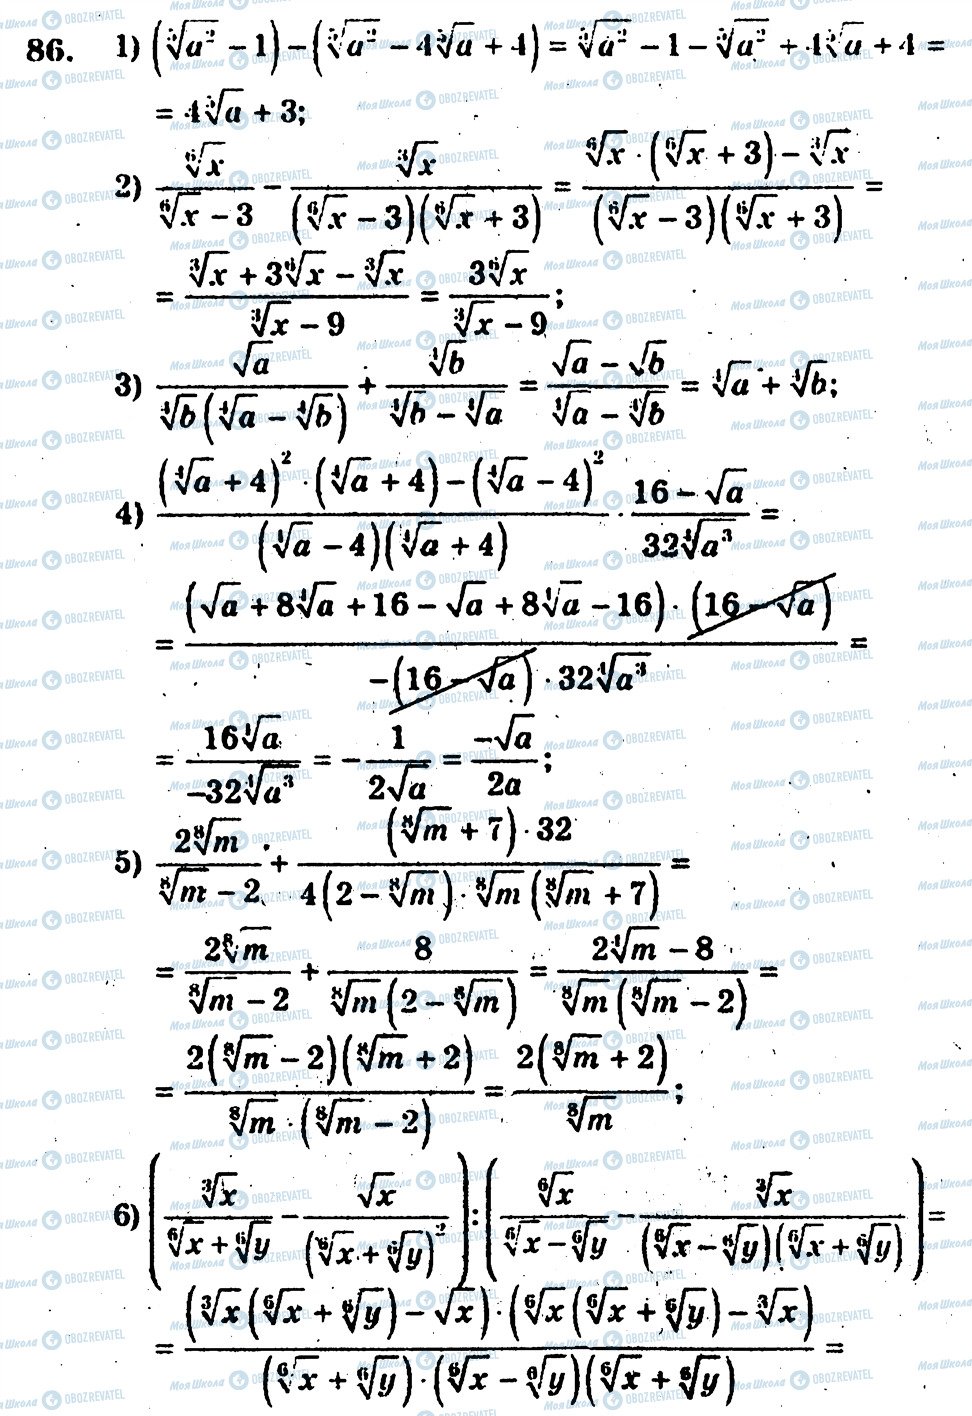 86. 1) (⁵√a² − 1) − (⁵√a² − 4⁵√a + 4) = ⁵√a² − 1 − ⁵√a² + 4⁵√a + 4 =
= 4⁵√a + 3;
2) ⁶√x / (⁶√x − 3) − ³√x / ((⁶√x − 3)(⁶√x + 3)) = (⁶√x · (⁶√x + 3) − ³√x) / ((⁶√x − 3)(⁶√x + 3)) =
= (³√x + 3⁶√x − ³√x) / (³√x − 9) = 3⁶√x / (³√x − 9);
3) √a / (⁴√b(⁴√a − ⁴√b)) + ⁴√b / (⁴√b − ⁴√a) = (√a − √b) / (⁴√a − ⁴√b) = ⁴√a + ⁴√b;
4) ((⁴√a + 4)² · (⁴√a + 4) − (⁴√a − 4)²) / ((⁴√a − 4)(⁴√a + 4)) · (16 − √a) / (32⁴√a³) =
= ((√a + 8⁴√a + 16 − √a + 8⁴√a − 16) · (16 − √a)) / (−(16 − √a) · 32⁴√a³) =
= 16⁴√a / (−32⁴√a³) = − 1 / (2√a) = −√a / 2a;
5) 2⁸√m / (⁸√m − 2) + ((⁸√m + 7) · 32) / (4(2 − ⁸√m) · ⁸√m(⁸√m + 7)) =
= 2⁸√m / (⁸√m − 2) + 8 / (⁸√m(2 − ⁸√m)) = (2⁴√m − 8) / (⁸√m(⁸√m − 2)) =
= (2(⁸√m − 2)(⁸√m + 2)) / (⁸√m · (⁸√m − 2)) = (2(⁸√m + 2)) / ⁸√m;
6) (³√x / (⁶√x + ⁶√y) − √x / (⁶√x + ⁶√y)²) : (⁶√x / (⁶√x − ⁶√y) − ³√x / ((⁶√x − ⁶√y)(⁶√x + ⁶√y))) =
= ((³√x(⁶√x + ⁶√y) − √x) · (⁶√x(⁶√x + ⁶√y) − ³√x)) / ((⁶√x + ⁶√y) · (⁶√x − ⁶√y)(⁶√x + ⁶√y)) =
Моя Школа OBOZREVATEL